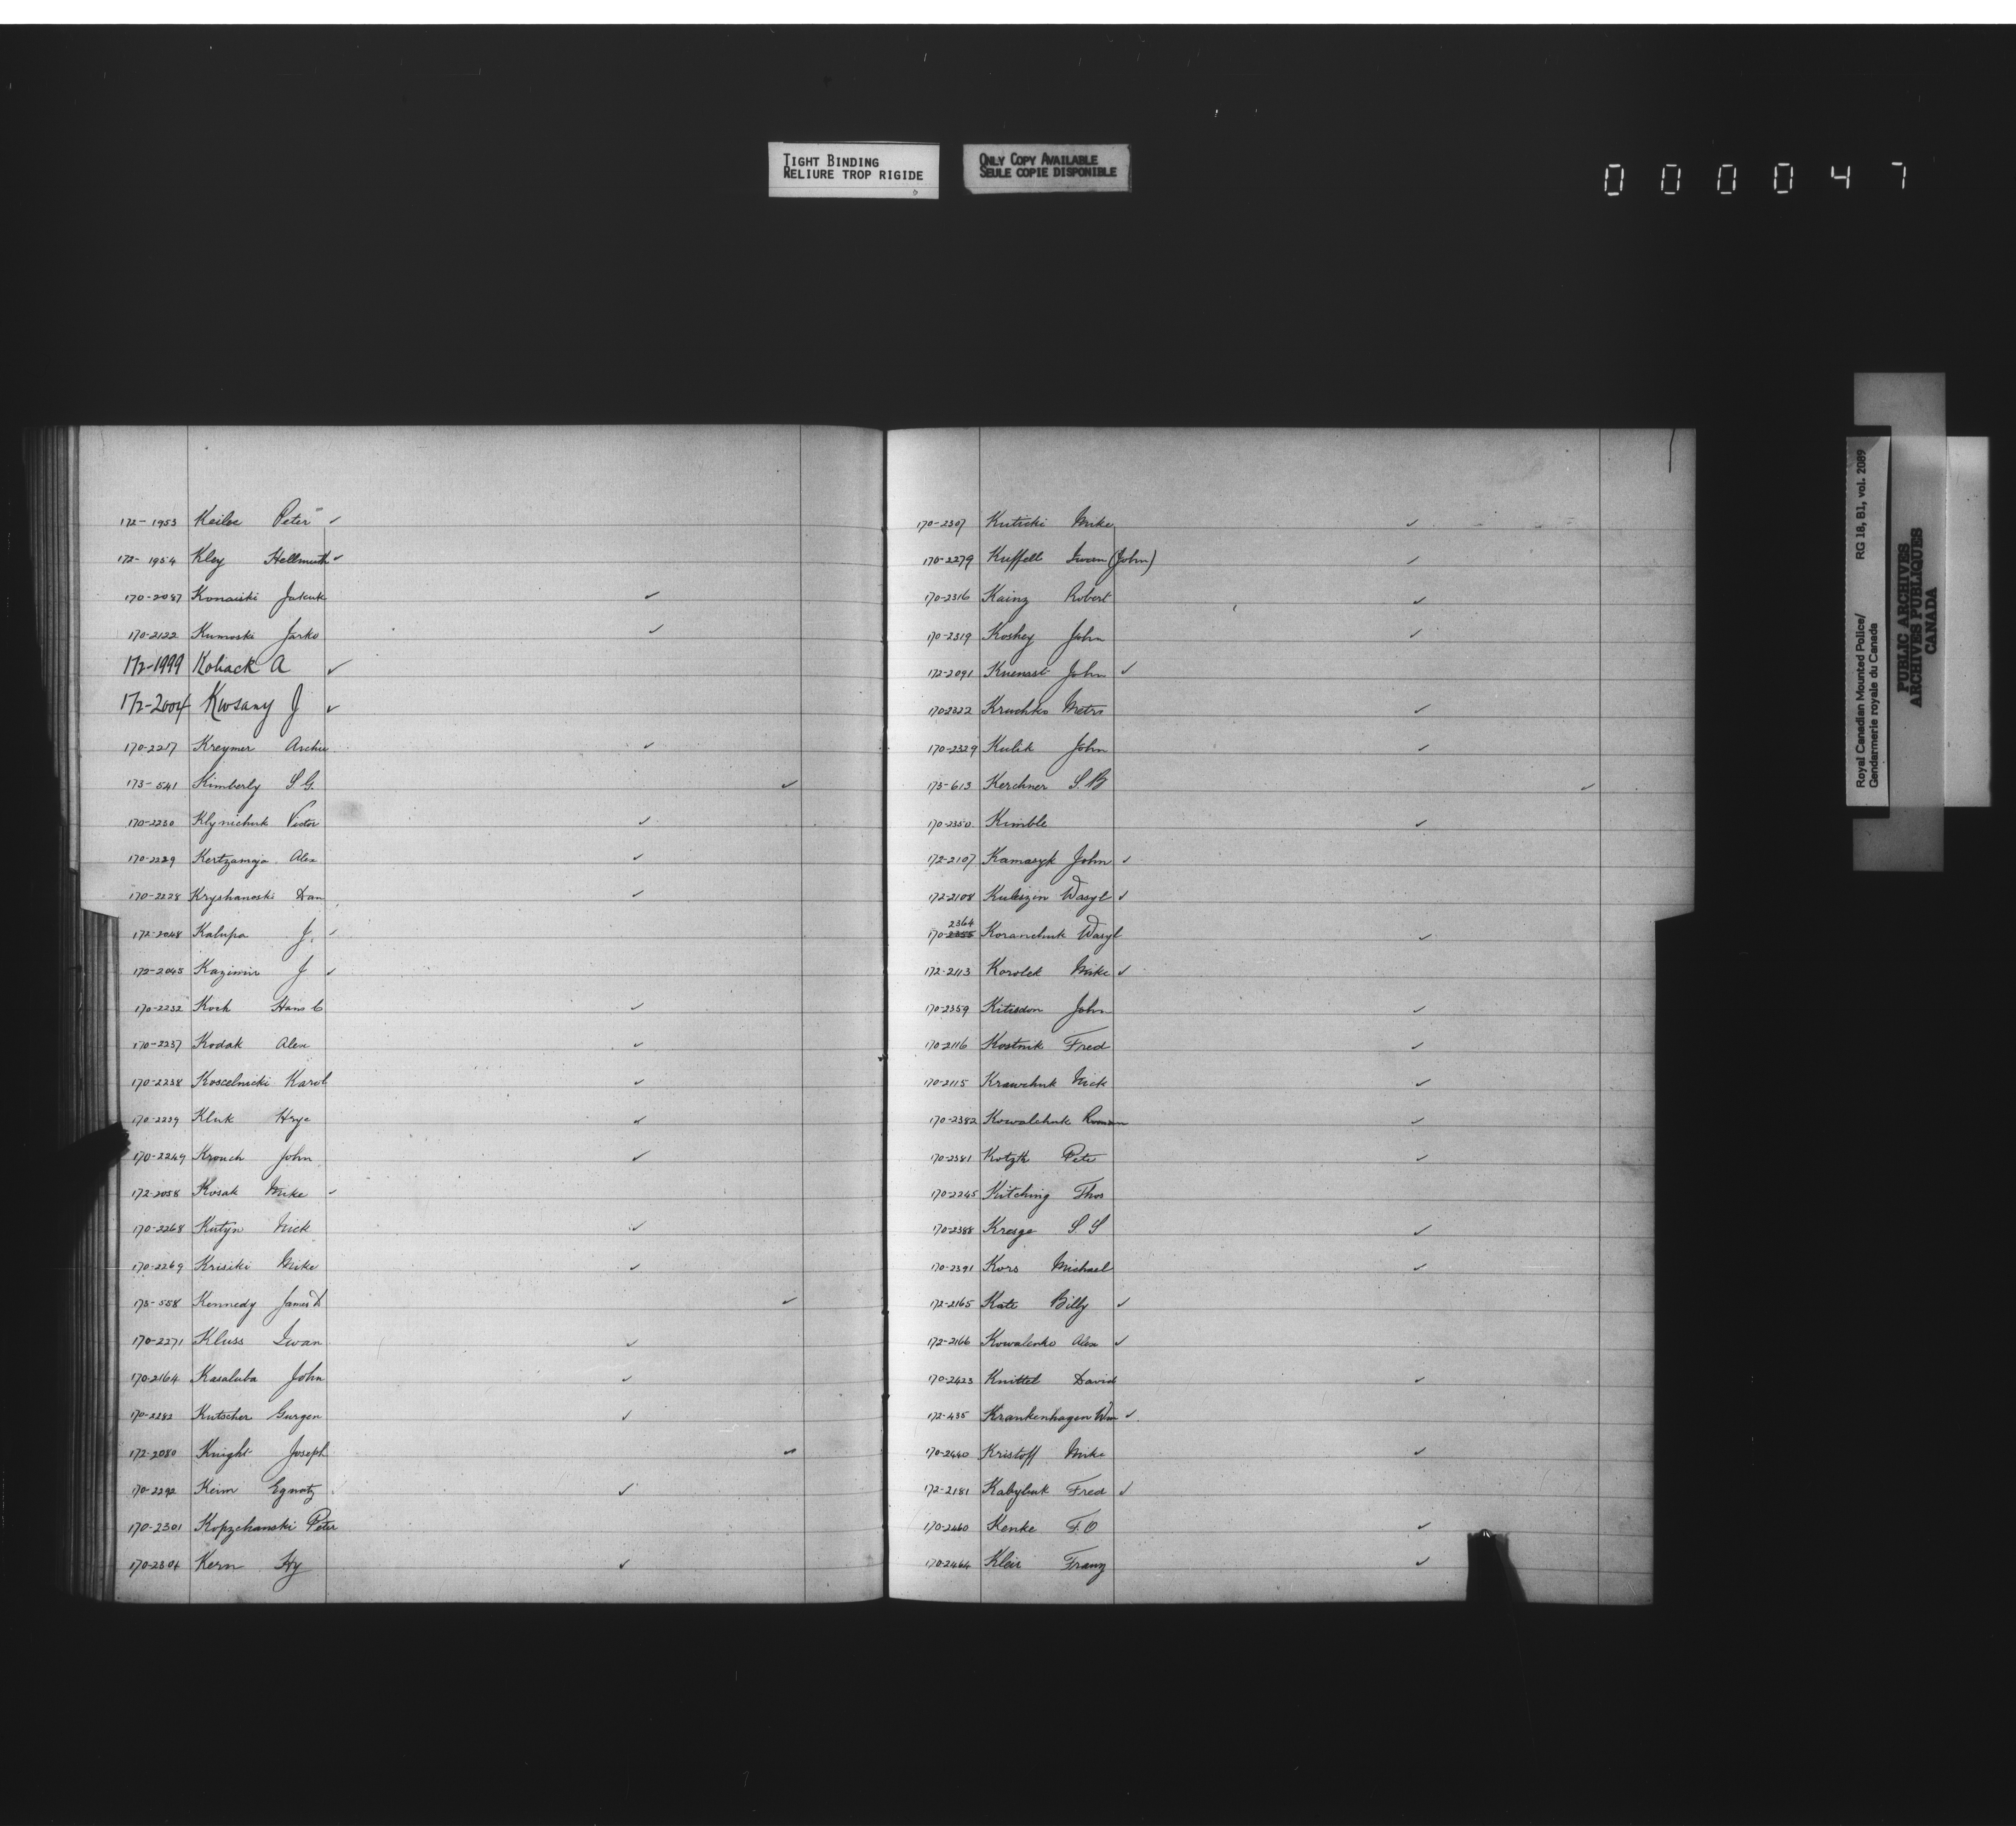 TIGHT BINDING
RELIURE TROP RIGIDE
ONLY COPY AVAILABLE
SEULE COPIE DISPONIBLE
000047
172-1953 Keiloe Peter ✓
172-1954 Kley Hellmuth ✓
170-2087 Konaiski Jakuk ✓
170-2122 Kumoski Jarko ✓
172-1999 Koliack A ✓
172-2004 Kwsany J ✓
170-2217 Kreymer Archie ✓
173-541 Kimberly S.G. ✓
170-2230 Klynichuk Victor ✓
170-2229 Kertzamaja Alex ✓
170-2228 Kryshanoski Dan ✓
172-2048 Kalupa J. ✓
172-2045 Kazimir J ✓
170-2232 Koch Hans C ✓
170-2237 Kodak Alex ✓
170-2238 Koscelnicki Karol ✓
170-2239 Kluk Hryc ✓
170-2249 Krouch John ✓
172-2058 Kosak Mike ✓
170-2268 Kutyn Nick ✓
170-2269 Krisiki Mike ✓
173-558 Kennedy James D ✓
170-2271 Kluss Iwan ✓
170-2164 Kasaluba John ✓
170-2282 Kutscher Gurgen ✓
172-2080 Knight Joseph ✓
170-2292 Keim Egnatz ✓
170-2301 Kopzchanski Peter
170-2304 Kern Hy ✓
170-2307 Kuticki Mike ✓
170-2279 Kuffell Iwan (John) ✓
170-2316 Kainz Robert ✓
170-2319 Koshey John ✓
172-2091 Kuenast John ✓
170-2322 Kruchko Metro ✓
170-2329 Kulik John ✓
173-613 Kerchner S.B ✓
170-2350 Kimble ✓
172-2107 Kamasyk John ✓
172-2108 Kuleszin Wasyl ✓
2364
170-2355 Koranchuk Wasyl ✓
172-2113 Korolek Mike ✓
170-2359 Kitisdon John ✓
170-2116 Kostnik Fred ✓
170-2115 Krawchuk Nick ✓
170-2382 Kowalchuk Roman ✓
170-2381 Kotzk Pete ✓
170-2245 Kitching Thos
170-2388 Kresge S.S ✓
170-2391 Kors Michael ✓
172-2165 Kate Billy ✓
172-2166 Kowalenko Alex ✓
170-2423 Knittel David ✓
172-435 Krankenhagen Wm ✓
170-2440 Kristoff Mike ✓
172-2181 Kabyluk Fred ✓
170-2460 Kenke F.O ✓
170-2464 Kleir Franz ✓
Royal Canadian Mounted Police/ RG 18, B1, vol. 2089
Gendarmerie royale du Canada
PUBLIC ARCHIVES
ARCHIVES PUBLIQUES
CANADA